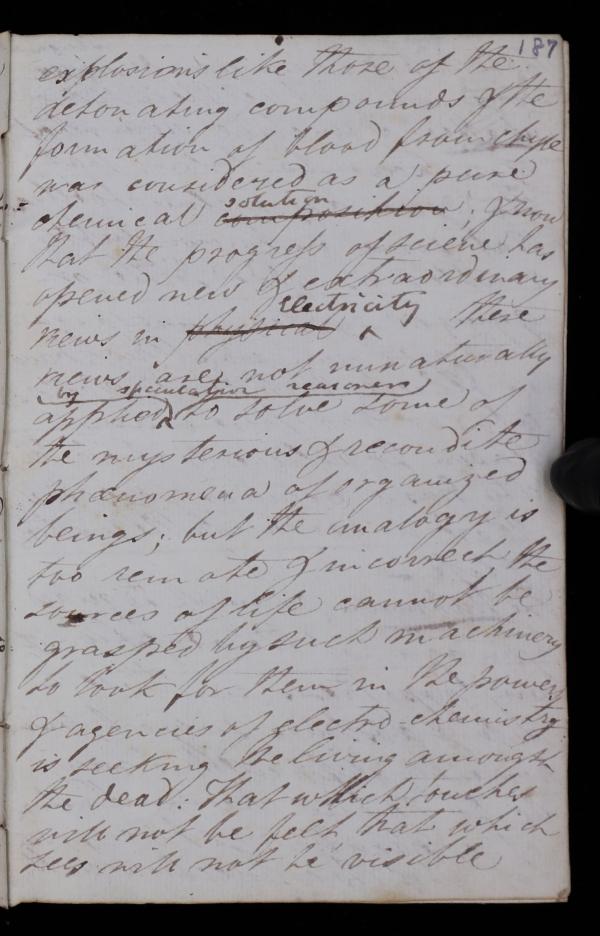 187
explosions like those of the
detonating compounds & the
formation of blood from chyle
was considered as a pure
solution
chemical composition; & now
that the progress of science has
opened new & extraordinary
electricity
views in physical ^ these
views are not unnaturally
by speculative reasoners
applied ^ to solve some of
the mysterious & recondite
phænomena of organized
beings; but the analogy is
too remote & incorrect the
sources of life cannot be
grasped by such machinery
to look for them in the powers
& agencies of electro-chemistry
is seeking the living amongst
the dead. That which touches
will not be felt that which
sees will not be visible